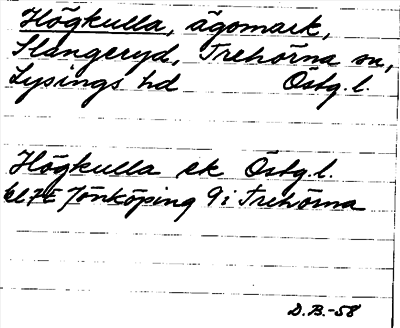 Högkulla, ägomark,
Slangeryd, Trehörna sn,
Lysings hd Östg. l.
Högkulla ek Östg. l.
Jönköping 9i Trehörna
D. B. -58